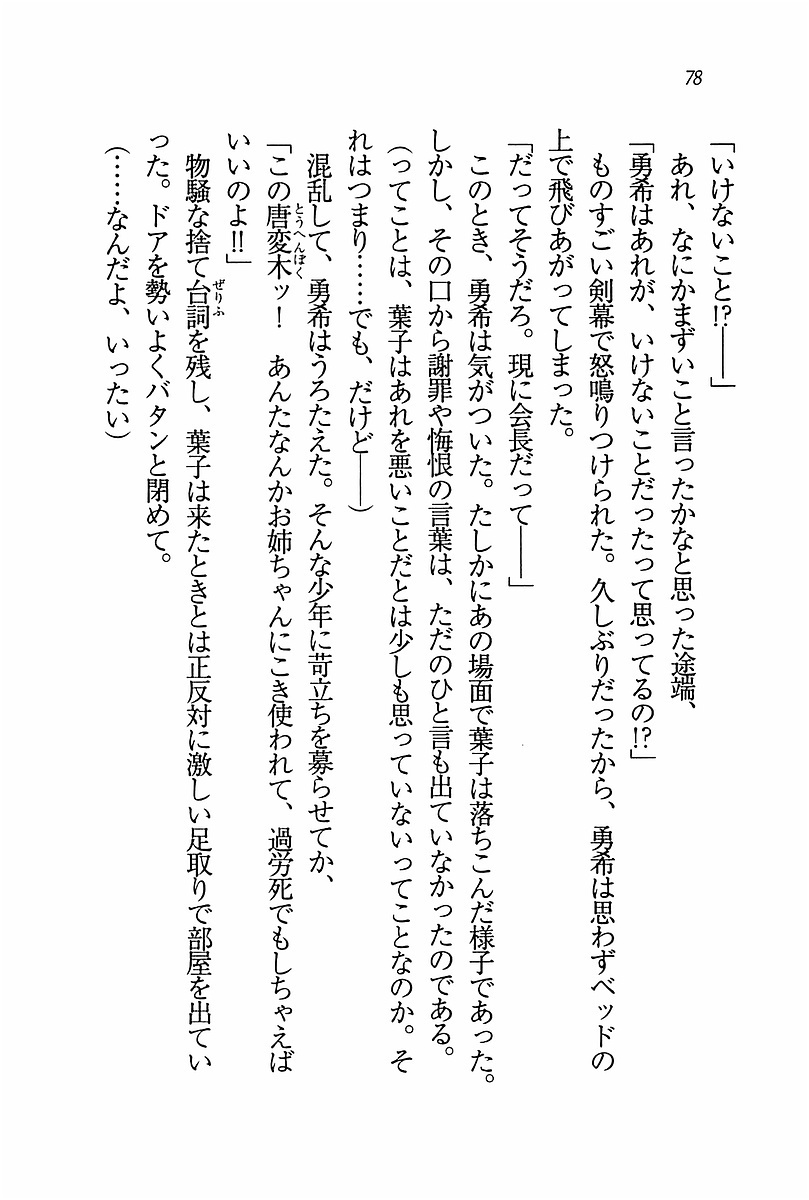 78
「いけないこと!?――」
　あれ、なにかまずいこと言ったかなと思った途端、
「勇希はあれが、いけないことだったって思ってるの!?」
　ものすごい剣幕で怒鳴りつけられた。久しぶりだったから、勇希は思わずベッドの
上で飛びあがってしまった。
「だってそうだろ。現に会長だって――」
　このとき、勇希は気がついた。たしかにあの場面で葉子は落ちこんだ様子であった。
しかし、その口から謝罪や悔恨の言葉は、ただのひと言も出ていなかったのである。
（ってことは、葉子はあれを悪いことだとは少しも思っていないってことなのか。そ
れはつまり……でも、だけど――）
　混乱して、勇希はうろたえた。そんな少年に苛立ちを募らせてか、
「この唐変木ッ！　あんたなんかお姉ちゃんにこき使われて、過労死でもしちゃえば
とうへんぼく
いいのよ!!」
　物騒な捨て台詞を残し、葉子は来たときとは正反対に激しい足取りで部屋を出てい
ぜりふ
った。ドアを勢いよくバタンと閉めて。
（……なんだよ、いったい）